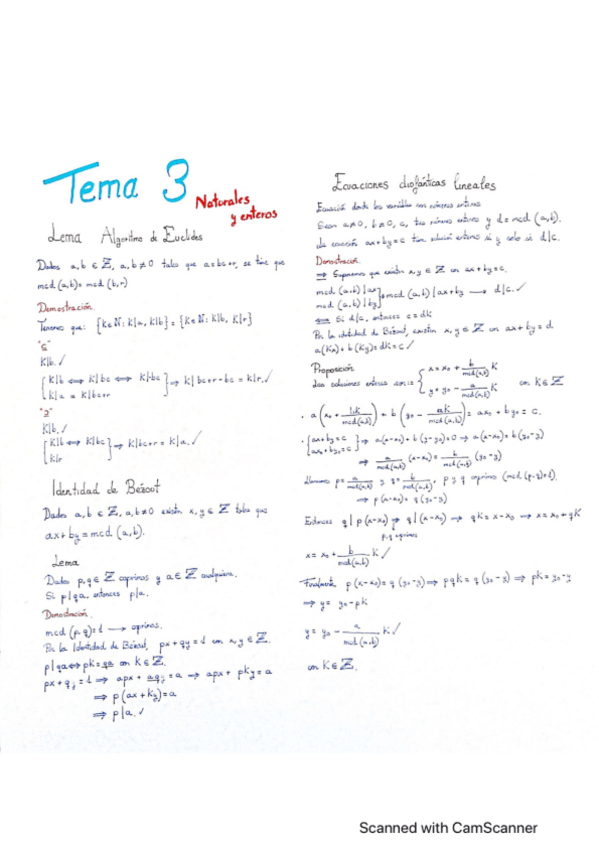 Tema 3
Naturales
y enteros
Lema Algoritmo de Euclides
Dados a, b ∈ ℤ, a, b ≠ 0 tales que a = bc + r, se tiene que
mcd (a, b) = mcd (b, r)
Demostración.
Tenemos que: {k ∈ ℕ : k|a, k|b} = {k ∈ ℕ : k|b, k|r}
"⊆"
k|b. ✓
{ k|b ⟺ k|bc ⟺ k|-bc
k|a = k|bc+r } ⇒ k|bc+r-bc = k|r. ✓
"⊇"
k|b. ✓
{ k|b ⟺ k|bc
k|r } ⇒ k|bc+r = k|a. ✓
Identidad de Bézout
Dados a, b ∈ ℤ, a, b ≠ 0 existen x, y ∈ ℤ tales que
ax + by = mcd (a, b).
Lema
Dados p, q ∈ ℤ coprimos y a ∈ ℤ cualquiera.
Si p|qa, entonces p|a.
Demostración.
mcd (p, q) = 1 ⟶ coprimos.
Por la Identidad de Bézout, px + qy = 1 con x, y ∈ ℤ.
p|qa ⟺ pk = qa con k ∈ ℤ.
px + qy = 1 ⇒ apx + aqy = a ⇒ apx + pky = a
⇒ p(ax + ky) = a
⇒ p|a. ✓
Ecuaciones diofánticas lineales
Ecuación donde las variables son números enteros
Sean a ≠ 0, b ≠ 0, c, tres números enteros y d = mcd (a, b).
La ecuación ax + by = c tiene solución entera si y solo si d|c.
Demostración.
⟹ Supongamos que existen x, y ∈ ℤ con ax + by = c.
mcd (a, b) | ax
mcd (a, b) | by } ⇒ mcd (a, b) | ax + by ⟶ d|c. ✓
⟸ Si d|c, entonces c = dk
Por la identidad de Bézout, existen x, y ∈ ℤ con ax + by = d
a(kx) + b(ky) = dk = c ✓
Proposición
Las soluciones enteras son: { x = x₀ + b/mcd(a,b) k
y = y₀ - a/mcd(a,b) k con k ∈ ℤ
· a (x₀ + bk/mcd(a,b)) + b (y₀ - ak/mcd(a,b)) = ax₀ + by₀ = c.
· { ax + by = c
ax₀ + by₀ = c } ⇒ a(x-x₀) + b(y-y₀) = 0 ⇒ a(x-x₀) = b(y₀-y)
⇒ a/mcd(a,b) (x-x₀) = b/mcd(a,b) (y₀-y)
Llamamos p = a/mcd(a,b) y q = b/mcd(a,b), p y q coprimos (mcd (p,q)=1).
⇒ p(x-x₀) = q(y₀-y)
Entonces q | p(x-x₀) ⇒ q | (x-x₀) ⇒ qk = x-x₀ ⇒ x = x₀ + qk
p, q coprimos
x = x₀ + b/mcd(a,b) k ✓
Finalmente p(x-x₀) = q(y₀-y) ⇒ pqk = q(y₀-y) ⇒ pk = y₀-y
⇒ y = y₀ - pk
y = y₀ - a/mcd(a,b) k ✓
con k ∈ ℤ.
Scanned with CamScanner